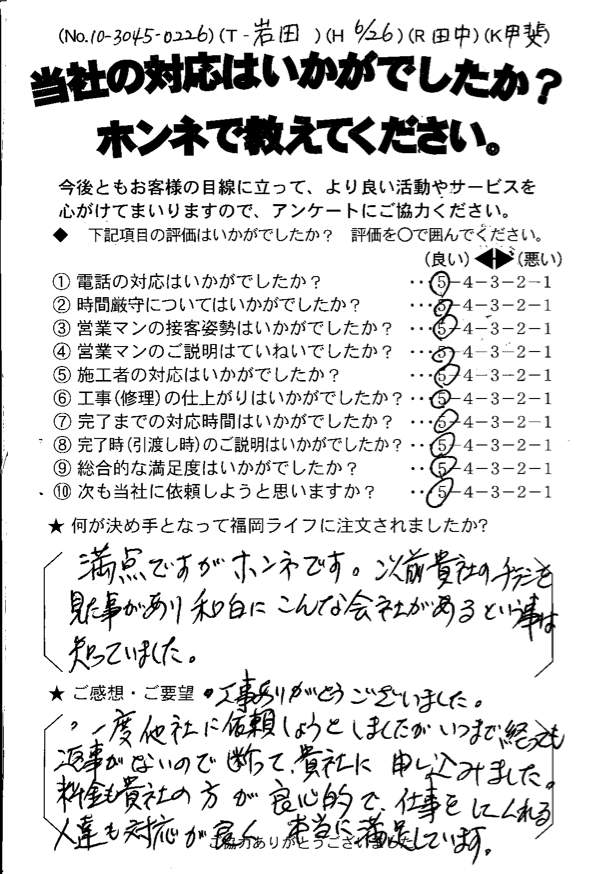 (No.10-3045-0226)(T-岩田 )(H 6/26)(R 田中)(K甲斐)
当社の対応はいかがでしたか？
ホンネで教えてください。
今後ともお客様の目線に立って、より良い活動やサービスを
心がけてまいりますので、アンケートにご協力ください。
◆ 下記項目の評価はいかがでしたか？ 評価を○で囲んでください。
(良い)◀▶(悪い)
① 電話の対応はいかがでしたか？ ‥5-4-3-2-1
② 時間厳守についてはいかがでしたか？ ‥5-4-3-2-1
③ 営業マンの接客姿勢はいかがでしたか？ ‥5-4-3-2-1
④ 営業マンのご説明はていねいでしたか？ ‥5-4-3-2-1
⑤ 施工者の対応はいかがでしたか？ ‥5-4-3-2-1
⑥ 工事(修理)の仕上がりはいかがでしたか？‥5-4-3-2-1
⑦ 完了までの対応時間はいかがでしたか？ ‥5-4-3-2-1
⑧ 完了時(引渡し時)のご説明はいかがでしたか？‥5-4-3-2-1
⑨ 総合的な満足度はいかがでしたか？ ‥5-4-3-2-1
⑩ 次も当社に依頼しようと思いますか？ ‥5-4-3-2-1
★ 何が決め手となって福岡ライフに注文されましたか?
満点ですがホンネです。以前貴社のチラシを
見た事があり和白にこんな会社があるという事は
知っていました。
★ ご感想・ご要望 ・工事ありがとうございました。
・一度他社に依頼しようとしましたがいつまで経っても
返事がないので断って、貴社に申し込みました。
料金も貴社の方が良心的で、仕事をしてくれる
人達も対応が良く、本当に満足しています。
ご協力ありがとうございました